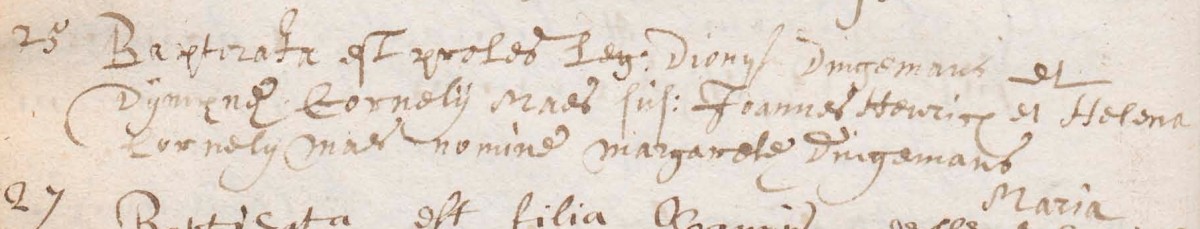 25 Baptizata est proles leg: Dionys Dingemans et
Dympnę Cornelij Maes sus: Joannes Henricx et Helena
Cornelij Maes nomine margarete Dingemans
Maria
27 Baptisata est filia